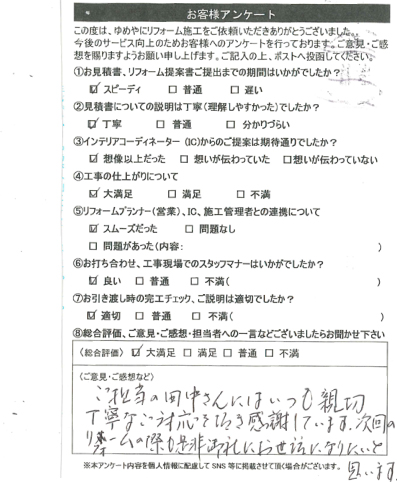 お客様アンケート
この度は、ゆめやにリフォーム施工をご依頼いただきありがとうございました。
今後のサービス向上のためお客様へのアンケートを行っております。ご意見・ご感
想を賜りますようお願い申し上げます。ご記入の上、ポストへ投函してください。
①お見積書、リフォーム提案書ご提出までの期間はいかがでしたか？
☑ スピーディ □ 普通 □ 遅い
②見積書についての説明は丁寧（理解しやすかった）でしたか？
☑ 丁寧 □ 普通 □ 分かりづらい
③インテリアコーディネーター（IC）からのご提案は期待通りでしたか？
☑ 想像以上だった □ 想いが伝わっていた □想いが伝わっていない
④工事の仕上がりについて
☑ 大満足 □ 満足 □ 不満
⑤リフォームプランナー（営業）、IC、施工管理者との連携について
☑ スムーズだった □ 問題なし
□ 問題があった（内容: ）
⑥お打ち合わせ、工事現場でのスタッフマナーはいかがでしたか？
☑ 良い □ 普通 □ 不満（ ）
⑦お引き渡し時の完工チェック、ご説明は適切でしたか？
☑ 適切 □ 普通 □ 不満（ ）
⑧総合評価、ご意見・ご感想・担当者への一言などございましたらお聞かせ下さい
〈総合評価〉 ☑ 大満足 □ 満足 □ 普通 □ 不満
〈ご意見・ご感想など〉
ご担当の田中さんにはいつも親切
丁寧なご対応を頂き感謝しています。次回の
リフォームの際も是非御社にお世話になりたいと
思います。
※本アンケート内容を個人情報に配慮して SNS 等に掲載させて頂く場合がございます。